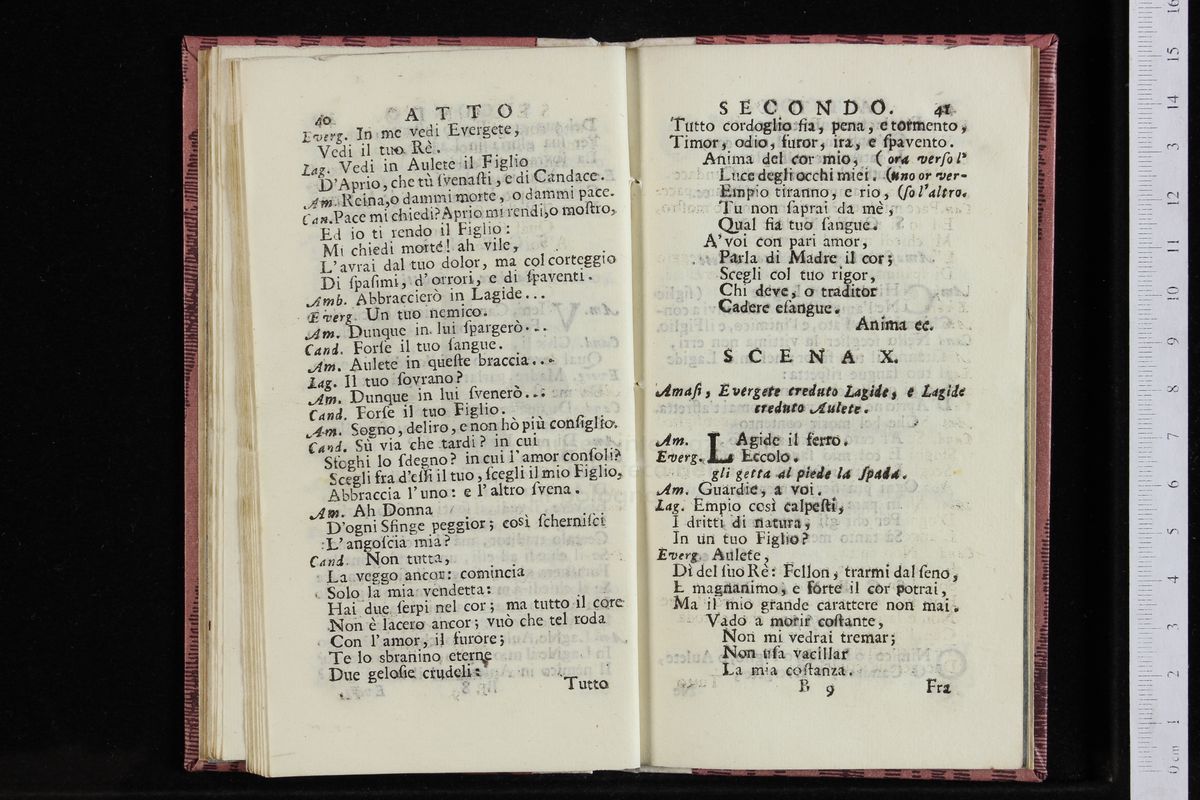 40 ATTO
Everg. In me vedi Evergete,
Vedi il tuo Rè.
Lag. Vedi in Aulete il Figlio
D'Aprio, che tù ſvenaſti, e di Candace.
Am. Reina, o dammi morte, o dammi pace.
Can. Pace mi chiedi? Aprio mi rendi, o moſtro,
Ed io ti rendo il Figlio:
Mi chiedi morte! ah vile,
L'avrai dal tuo dolor, ma col corteggio
Di ſpaſimi, d'orrori, e di ſpaventi.
Amb. Abbraccierò in Lagide...
Everg. Un tuo nemico.
Am. Dunque in lui ſpargerò...
Cand. Forſe il tuo ſangue.
Am. Aulete in queſte braccia...
Lag. Il tuo ſovrano?
Am. Dunque in lui ſvenerò...
Cand. Forſe il tuo Figlio.
Am. Sogno, deliro, e non hò più conſiglio.
Cand. Sù via che tardi? in cui
Sfoghi lo ſdegno? in cui l'amor conſoli?
Scegli fra d'eſſi il tuo, ſcegli il mio Figlio,
Abbraccia l'uno: e l'altro ſvena.
Am. Ah Donna
D'ogni Sfinge peggior; così ſcherniſci
L'angoſcia mia?
Cand. Non tutta,
La veggo ancor: comincia
Solo la mia vendetta:
Hai due ſerpi nel cor; ma tutto il core
Non è lacero ancor; vuò che tel roda
Con l'amor, il furore;
Te lo sbranino eterne
Due geloſie crudeli:
Tutto
SECONDO. 41
Tutto cordoglio fia, pena, e tormento,
Timor, odio, furor, ira, e ſpavento.
Anima del cor mio, (ora verſo l'
Luce degli occhi miei. (uno or ver-
Empio tiranno, e rio, (ſo l'altro.
Tu non ſaprai da mè,
Qual fia tuo ſangue.
A' voi con pari amor,
Parla di Madre il cor;
Scegli col tuo rigor,
Chi deve, o traditor
Cadere eſangue.
Anima ec.
SCENA X.
Amaſi, Evergete creduto Lagide, e Lagide
creduto Aulete.
Am. LAgide il ferro.
Everg. Eccolo.
gli getta al piede la ſpada.
Am. Guardie, a voi.
Lag. Empio così calpeſti,
I dritti di natura,
In un tuo Figlio?
Everg. Aulete,
Di del ſuo Rè: Fellon, trarmi dal ſeno,
E magnanimo, e forte il cor potrai,
Ma il mio grande carattere non mai.
Vado a morir coſtante,
Non mi vedrai tremar;
Non uſa vacillar
La mia coſtanza.
B 9 Fra